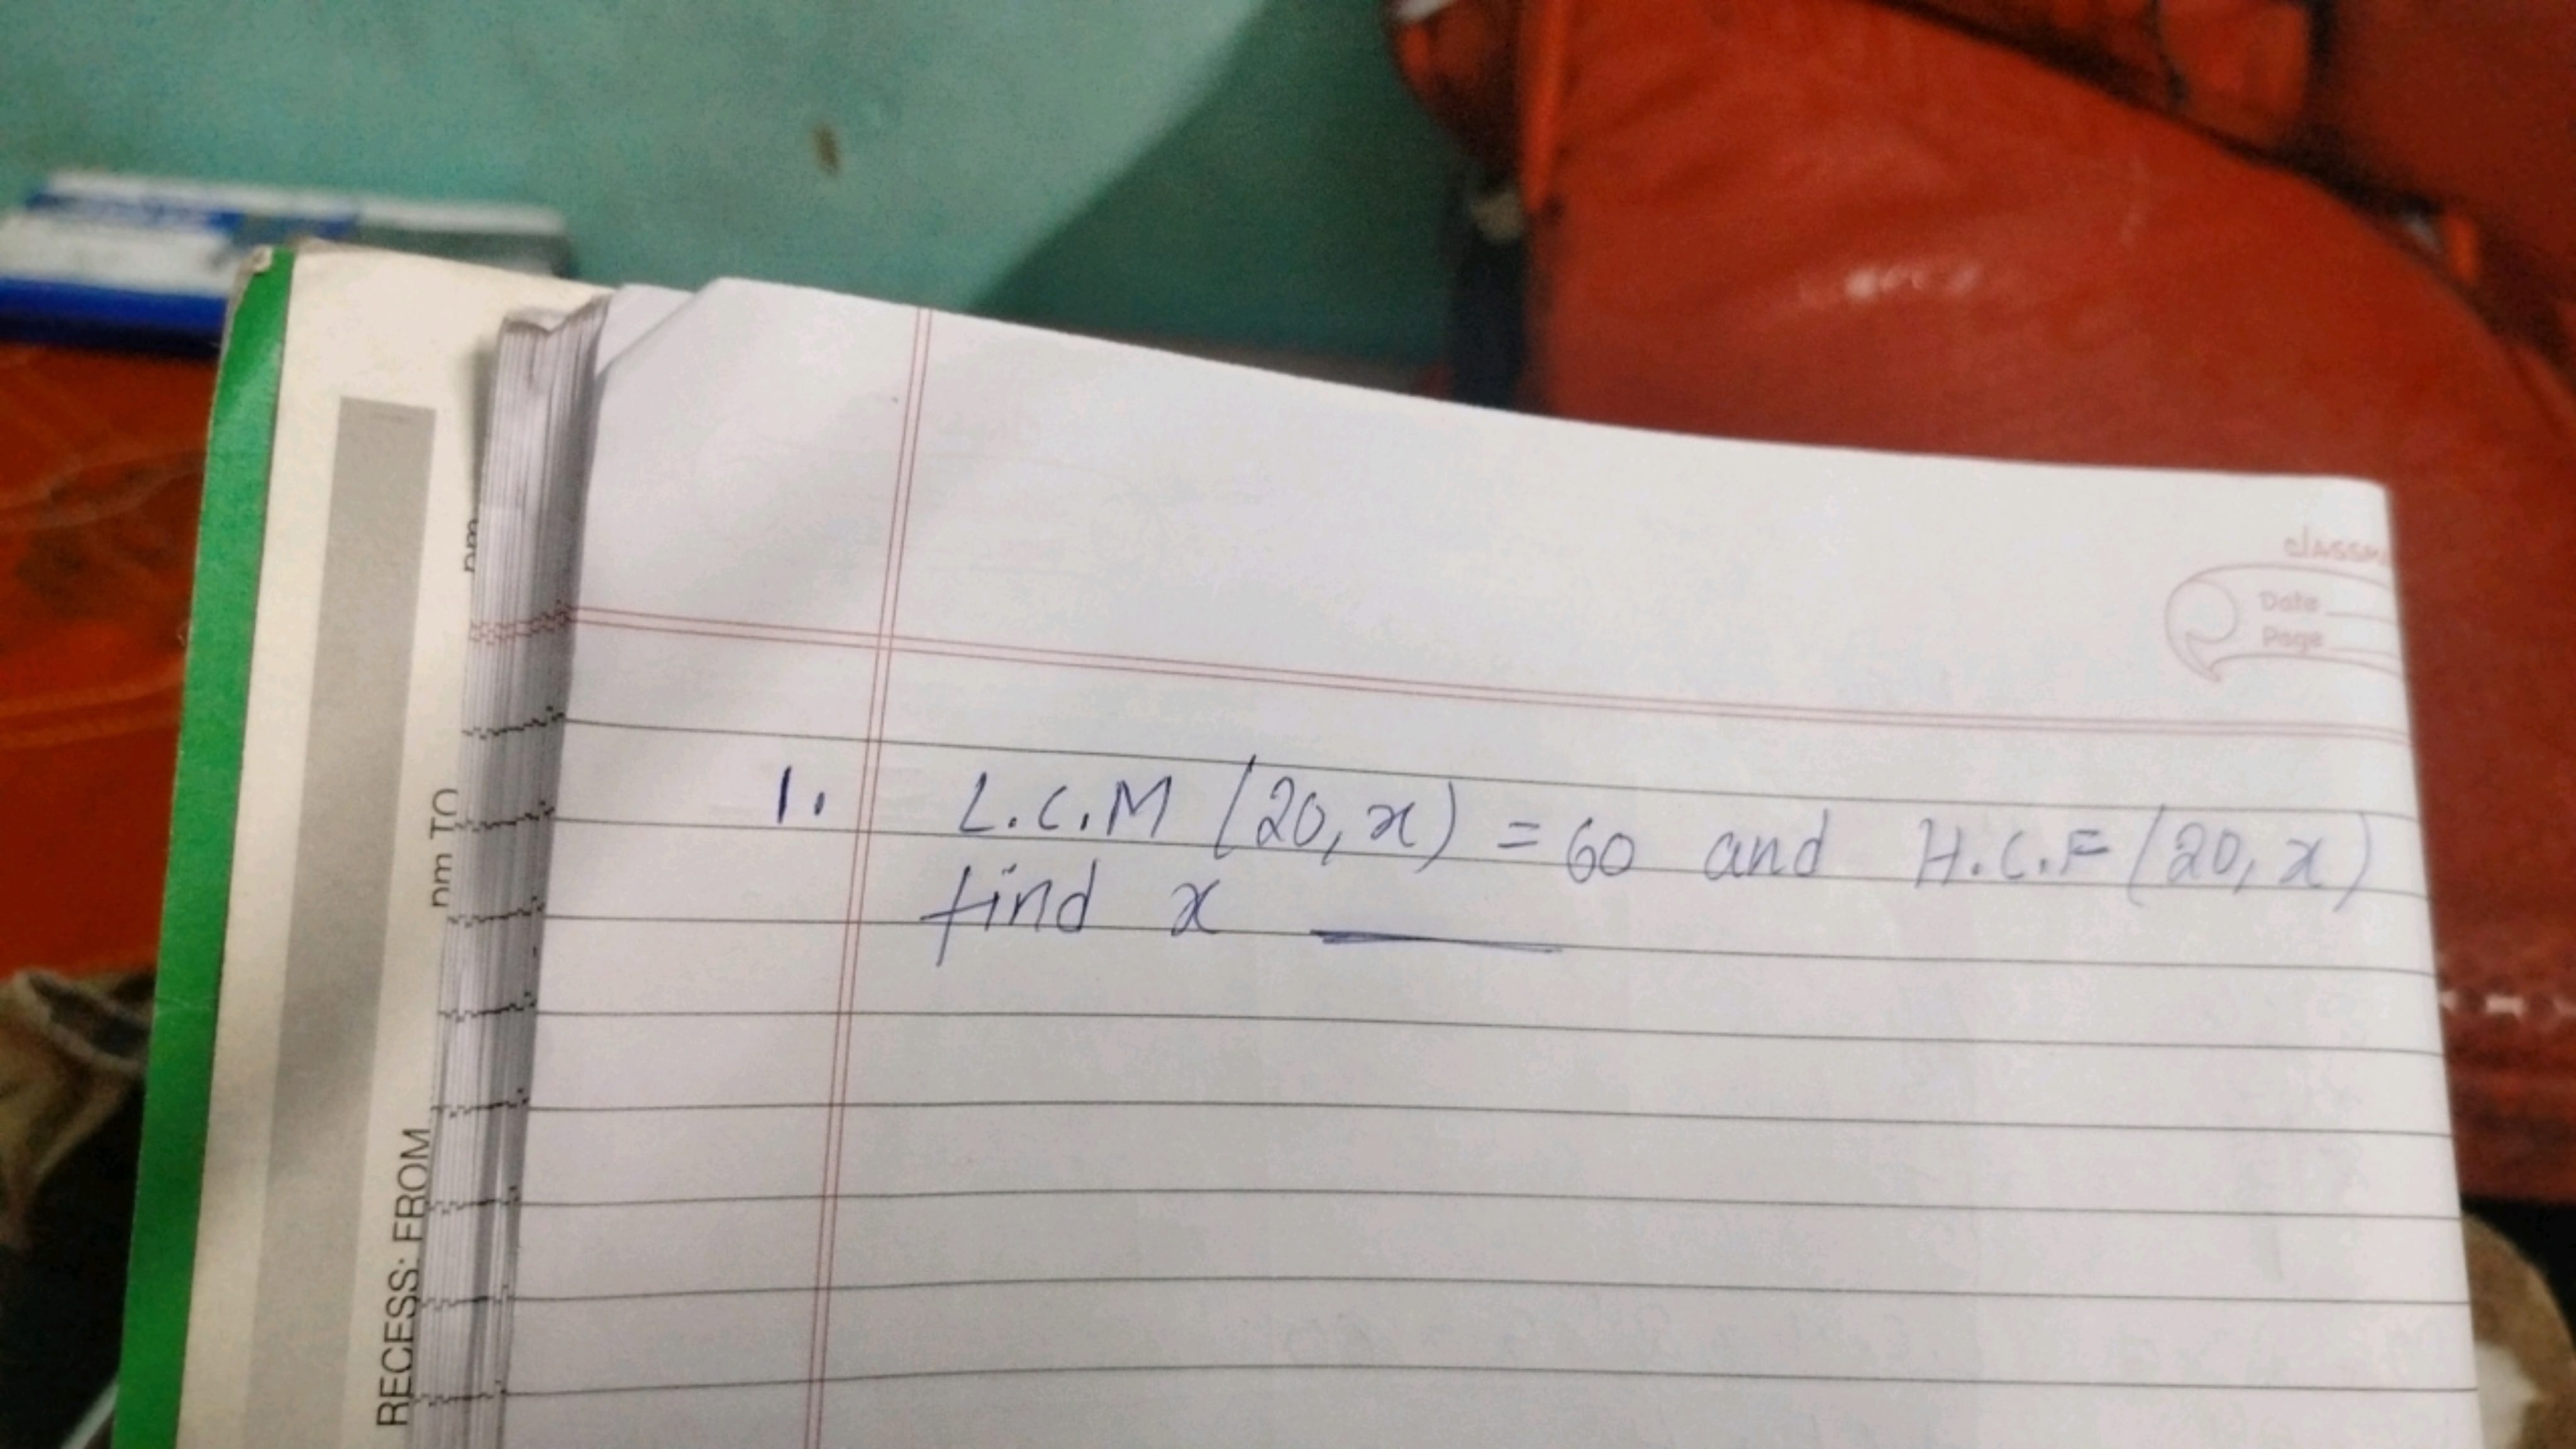 classm
Date
Page
1. L.C.M (20, x) = 60 and H.C.F (20, x)
find x
nm
nm TO
RECESS: FROM